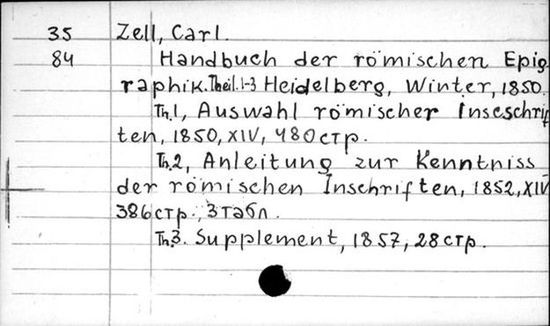 35 Zell, Carl.
84 Handbuch der römischen Epig
raphik. Theil. 1-3 Heidelberg, Winter, 1850.
Th.1, Auswahl römischer Inseschrif
ten, 1850, XIV, 480 стр.
Th.2, Anleitung zur Kenntniss
der römischen Inschriften, 1852, XIV
386 стр., 3 табл.
Th.3. Supplement, 1857, 28 стр.